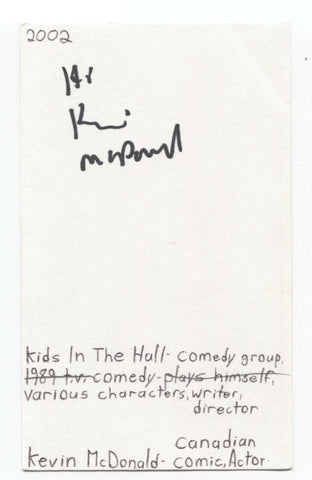 2002
Hi
Kevin
McDonald
Kids In The Hall - comedy group,
1989 t.v. comedy - plays himself,
various characters, writer,
director
Canadian
Kevin McDonald - comic, Actor.